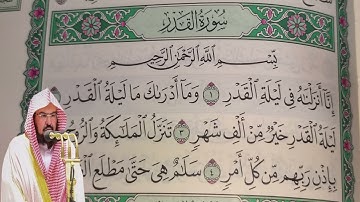 سُورَةُ القَدْرِ
بِسْمِ ٱللَّهِ ٱلرَّحْمَٰنِ ٱلرَّحِيمِ
إِنَّآ أَنزَلْنَٰهُ فِى لَيْلَةِ ٱلْقَدْرِ ١ وَمَآ أَدْرَىٰكَ مَا لَيْلَةُ ٱلْقَدْرِ
لَيْلَةُ ٱلْقَدْرِ خَيْرٌ مِّنْ أَلْفِ شَهْرٍ ٣ تَنَزَّلُ ٱلْمَلَٰٓئِكَةُ وَٱلرُّو
بِإِذْنِ رَبِّهِم مِّن كُلِّ أَمْرٍ ٤ سَلَٰمٌ هِىَ حَتَّىٰ مَطْلَعِ